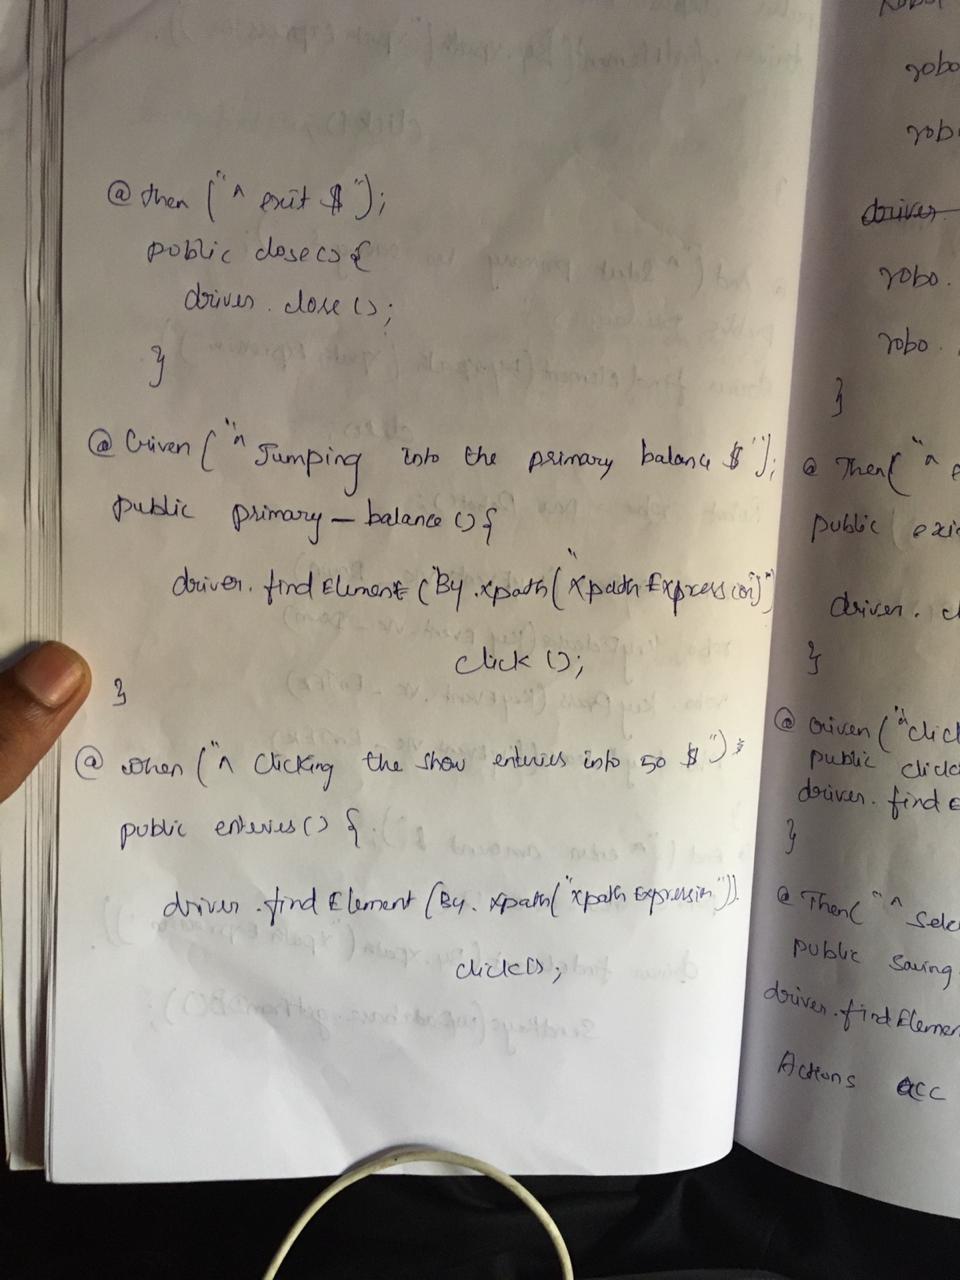 @ then ("^ exit $");
public close() {
driver. close ();
}
@ Given ("^ Jumping into the primary balance $");
public primary - balance () {
driver. find Element (By .xpath ("xpath Expression")
click ();
}
@ when ("^ clicking the show enteries into 50 $");
public enteries () {
driver .find Element (By. xpath ("xpath Expression")).
click();
robo
rob
driver.
robo.
robo.
}
@ Then( "^
public exi
driver. cl
}
@ Given ("^ click
public click
driver. find E
}
@ Then( "^ Sele
public saving
driver.find Elemen
Actions acc